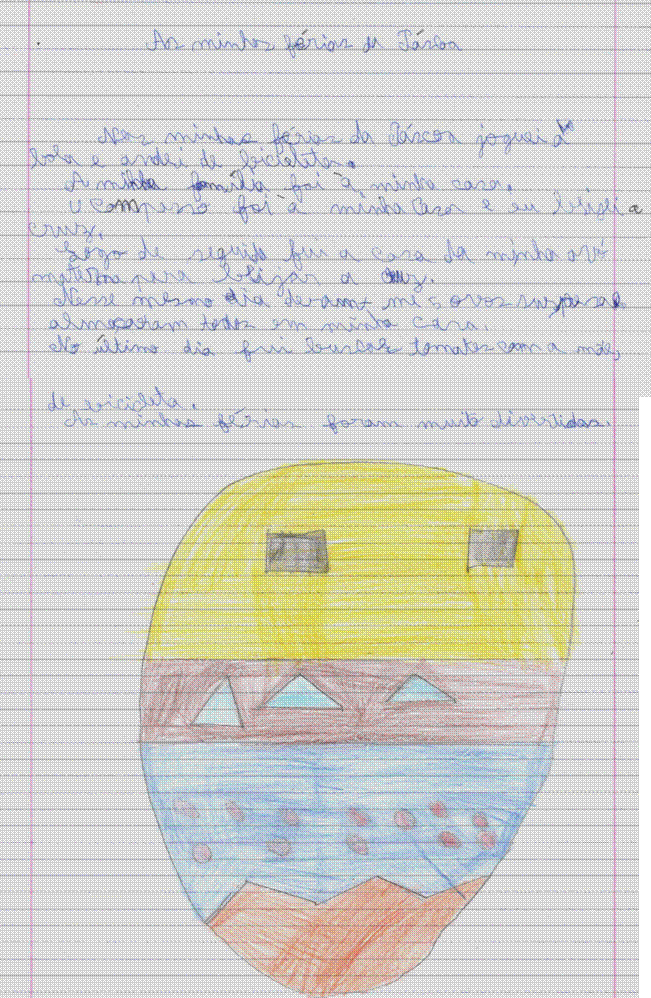 As minhas férias da Páscoa
Nas minhas férias da Páscoa joguei à
bola e andei de bicicleta.
A minha família foi à minha casa.
O compasso foi à minha casa e eu beijei a
cruz.
Logo de seguida fui a casa da minha avó
materna para beijar a cruz.
Nesse mesmo dia deram-me ovos surpresa
almoçaram todos em minha casa.
No último dia fui buscar tomates com a mãe,
de bicicleta.
As minhas férias foram muito divertidas.